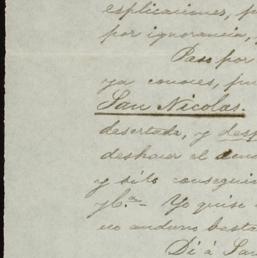 esplicaciones, p
por ignorancia,
Paso por
ya conoces, pu
San Nicolas.
desertada, y desp
deshacer el
y si lo consegui
Yo quise
no anduvo basta
Di á San